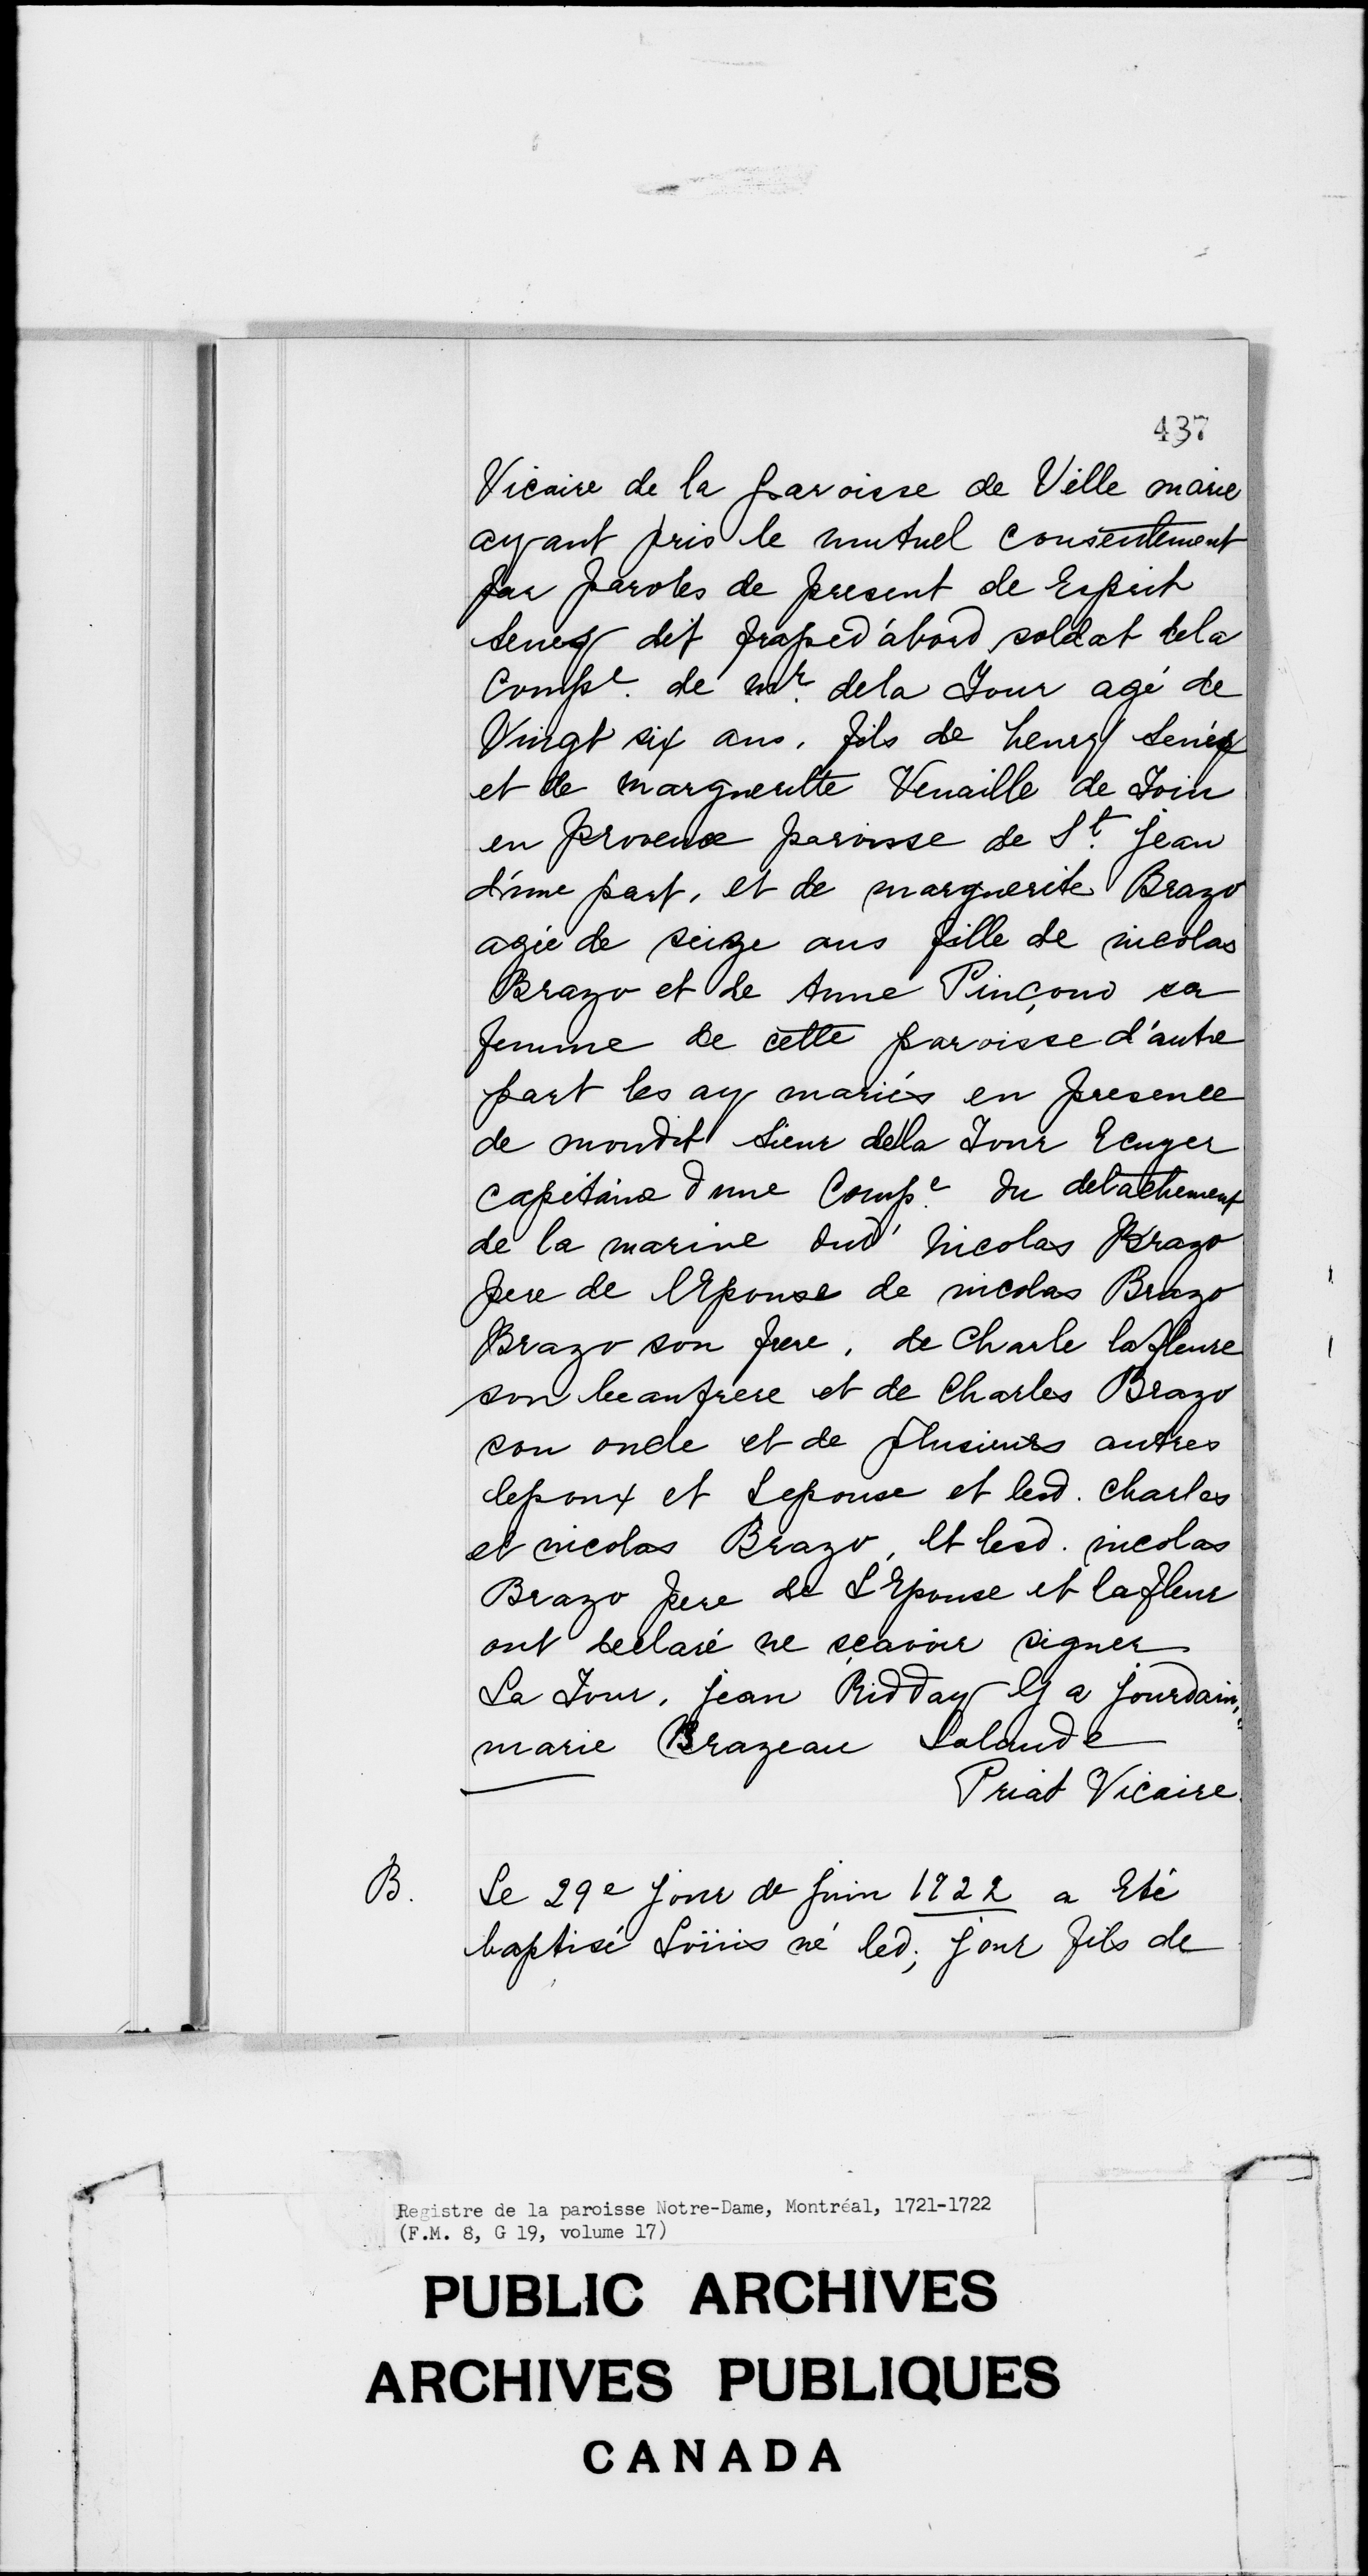 437
Vicaire de la paroisse de Ville marie
ayant pris le mutuel consentement
par paroles de present de Esprit
Seney dit fraped'abord soldat dela
Compe. de mr. dela Tour agé de
Vingt six ans. fils de henry Seney
et de marguerttte Venaille de Toin
en provence paroisse de St. jean
d'une part, et de marguerite Brazo
agée de seize ans fille de nicolas
Brazo et de Anne Pinçono sa
femme de cette paroisse d'autre
part les ay mariés en presence
de mondit sieur de la Tour Ecuyer
capitaine d'une Compe. du detachement
de la marine dud' Nicolas Brazo
pere de l'Epouse de nicolas Brazo
Brazo son frere, de Charle lafleure
son beaufrere et de Charles Brazo
son oncle et de plusieurs autres
lepoux et Lepouse et lesd. Charles
et nicolas Brazo, et lesd. nicolas
Brazo pere de L'Epouse et lafleur
ont declaré ne sçavoir signer
La Tour. jean Ridday G a jourdain,
marie Brazeau Lalande
Priat Vicaire
B. Le 29e jour de juin 1722 a Eté
baptisé Loüis né led; jour fils de
Registre de la paroisse Notre-Dame, Montréal, 1721-1722
(F.M. 8, G 19, volume 17)
PUBLIC ARCHIVES
ARCHIVES PUBLIQUES
CANADA